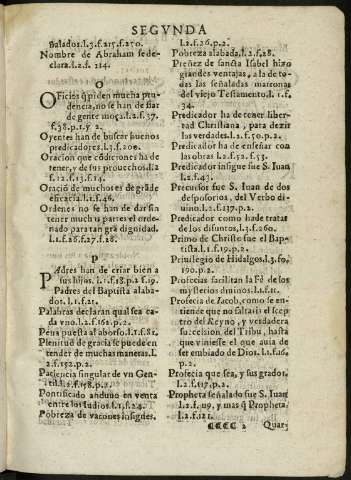 SEGVNDA
ñalados.l.3.f.215.f.270.
Nombre de Abraham se de-
clara.l.2.f. 214.
O
OFicios q̃ piden mucha pru-
dencia, no se han de fiar
de gente moça.l.2.f.37.
f.38.p.1.y 2.
Oyentes han de buscar buenos
predicadores.l.3.f.208.
Oracion que cõdiciones ha de
tener, y de sus prouechos.l.2
f.12.f.13.f.14.
Oraciõ de muchos es de grãde
eficacia.l.1.f.46.
Ordenes no se han de dar sin
tener muchas partes el orde-
nado para tan grã dignidad.
l.1.f.26.f.27.f.28.
P
PAdres han de criar bien a
sus hijos. l.1.f.18.p.2 f.19.
Padres del Baptista alaba-
dos.l.1.f.21.
Palabras declaran qual sea ca-
da vno.l.2.f.162.p.2.
Pena puesta al aborso.l.2.f.81.
Plenitud de gracia se puede en
tender de muchas maneras.l.
2.f.152.p.2.
Paciencia singular de vn Gen-
til.l.2.f.158.p.2.
Pontificado anduuo en venta
entre los Iudios.l.1.f.24.
Pobreza de varones insignes.
l.2.f.26.p.2.
Pobreza alabada.l.2.f.28.
Preñez de sancta Isabel hizo
grandes ventajas, a la de to-
das las señaladas matronas
del viejo Testamento.l.1.f.
34.
Predicador ha de tener liber-
tad Christiana, para dezir
las verdades.l.2.f.50.p.2.
Predicador ha de enseñar con
las obras l.2.f.52.f.53.
Predicador insigne fue S. Iuan
l.2.f.43.
Precursor fue S. Iuan de dos
desposorios, del Verbo di-
uino.l.2.f.137.p.2.
Predicador como ha de tratar
de los difuntos.l.3.f.260.
Primo de Christo fue el Bap-
tista.l.1.f.19.p.2.
Priuilegio de Hidalgos.l.3.fo.
190.p.2.
Profecias facilitan la Fè de los
mysterios diuinos.l.1.f.11.
Profecia de Iacob, como se en-
tiende que no faltaria el scep
tro del Reyno, y verdadera
succession del Tribu, hasta
que viniesse el que auia de
ser embiado de Dios. l.1.f.16.
p.2.
Profecia que sea, y sus grados.
l.2.f.117.p.2.
Propheta señalado fue S. Iuan
l.2.f.119, y mas q̃ Propheta.
l.2.f.121.
CCCC 2 Quar-